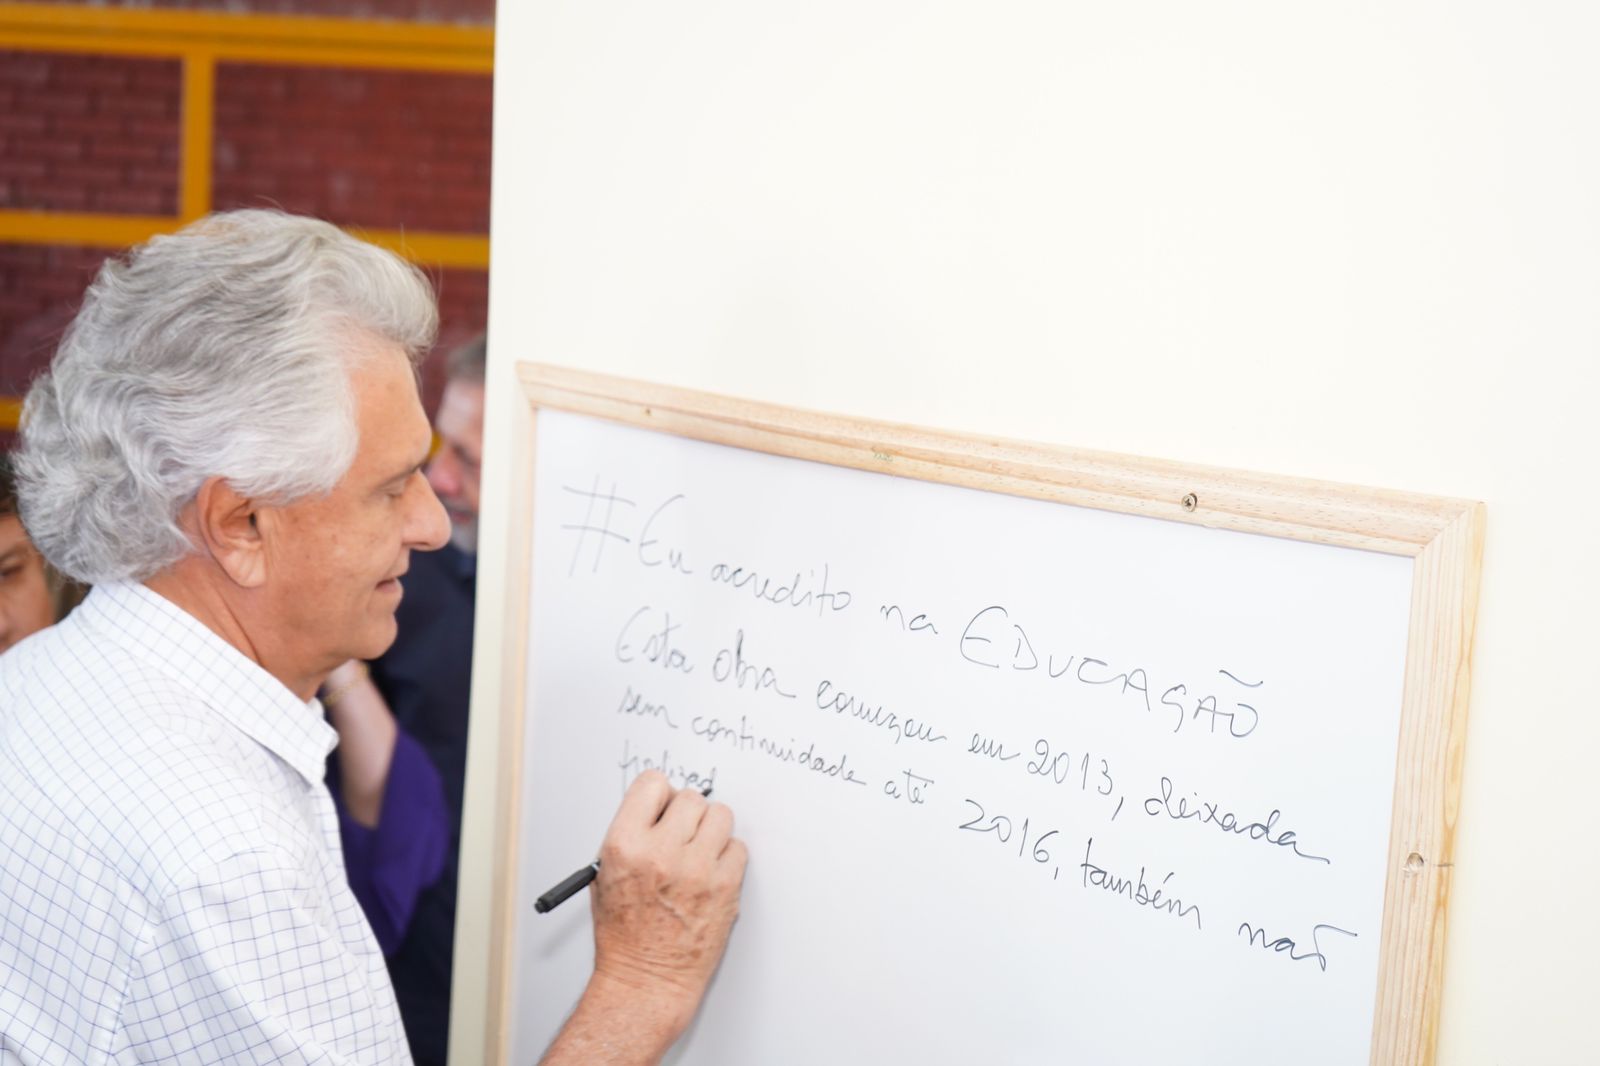 #Eu acredito na EDUCAÇÃO
Esta obra começou em 2013, deixada
sem continuidade até 2016, também não